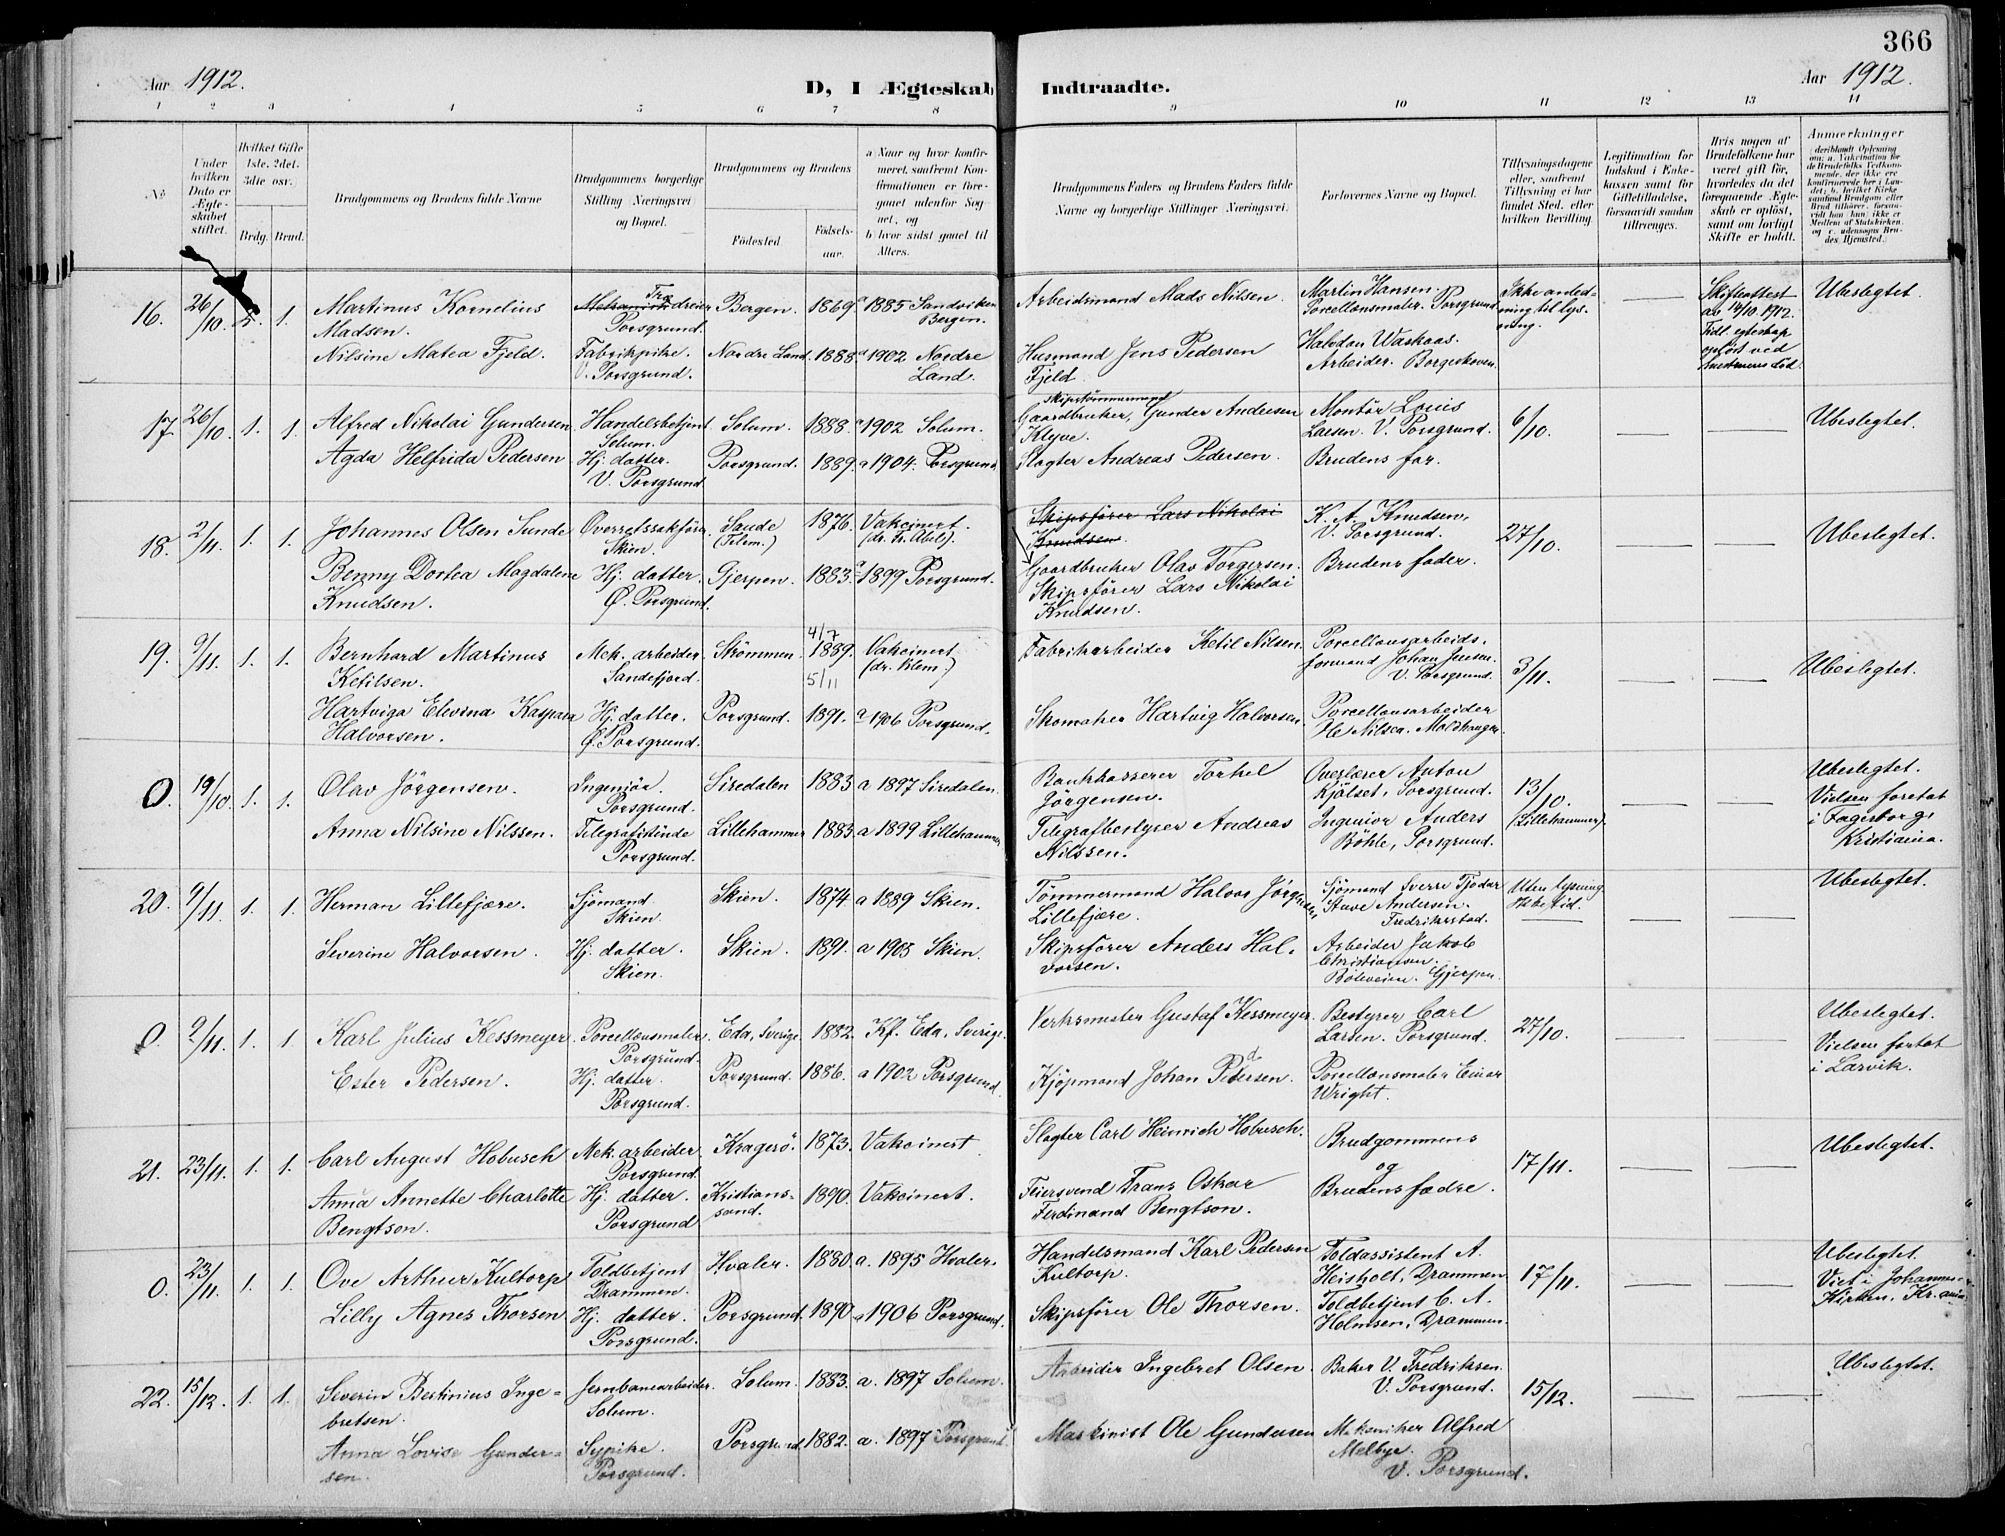 366
Aar 1912.
D, I Ægteskab Indtraadte.
Aar 1912.
1 2 3 4 5 6 7 8 9 10 11 12 13 14
No
Under hvilken Dato er Ægteskabet stiftet.
Hvilket Gifte 1ste, 2det, 3die osv.
Brdg. Brud.
Brudgommens og Brudens fulde Navne
Brudgommens borgerlige Stilling Næringsvei og Bopæl.
Brudgommens og Brudens
Fødested. Fødselsaar.
a Naar og hvor konfirmeret, saafremt Konfirmationen er foregaaet udenfor Sognet, og
b hvor sidst gaaet til Alters.
Brudgommens Faders og Brudens Faders fulde Navne og borgerlige Stillinger Næringsvei.
Forlovernes Navne og Bopæl.
Tillysningsdagene eller, saafremt Tillysning ei har fundet Sted, efter hvilken Bevilling.
Legitimation for Indskud i Enkekassen samt for Giftetilladelse, forsaavidt saadan tiltrænges.
Hvis nogen af Brudefolkene har været gift før, hvorledes da det foregaaende Ægteskab er opløst, samt om lovligt Skifte er holdt.
Anmærkninger
16. 26/10. 2. 1.
Martinus Kornelius Madsen.
Nilsine Matea Fjeld.
Trædreier Porsgrund.
Fabrikpike. V. Porsgrund.
Bergen. 1869 a 1885 Sandviken Bergen.
Nordre Land. 1888 a 1902 Nordre Land.
Arbeidsmand Mads Nilsen.
Husmand Jens Pedersen Fjeld.
Martin Hansen. Porcellænsmaler. Porsgrund
Halvdan Waskaas. Arbeider. Borgeskoven.
Ikke anledning til lysning.
Skifteattest av 14/10 1912. Tidl. egteskap opløst ved hustruens død.
Ubeslegtet.
17. 26/10. 1. 1.
Alfred Nikolai Gundersen
Agda Helfrida Pedersen
Handelsbetjent Solum.
Hj. datter. V. Porsgrund.
Solum. 1888. a 1902 Solum.
Porsgrund. 1889. a 1904. Porsgrund.
skipstømmermand
Gaardbruker, Gunder Andersen Klyve.
Slagter Andreas Pedersen.
Montør Louis Larsen. V. Porsgrund.
Brudens far.
6/10.
Ubeslegtet.
18. 2/11. 1. 1.
Johannes Olsen Sunde
Benny Dortea Magdalene Knudsen.
Overretssakfører Skien.
Hj. datter. Ø. Porsgrund.
Saude (Telem.) 1876. Vakcinert. (dr. Fr. Abel).
Gjerpen. 1883. a 1899 Porsgrund.
Skipsfører Lars Nikolai Knudsen.
Gaardbruker Olav Torgersen.
Skipsfører Lars Nikolai Knudsen.
K. A. Knudsen, V. Porsgrund.
Brudens fader.
27/10.
Ubeslegtet.
19. 9/11. 1. 1.
Bernhard Martinus Ketilsen.
Hartviga Elevina Kaspara Halvorsen.
Mek. arbeider. Sandefjord.
Hj. datter. Ø. Porsgrund.
Strømmen. 4/7 1889. Vakcinert (dr. Blom.)
5/11
Porsgrund. 1891. a 1906 Porsgrund.
Fabrikarbeider Ketil Nilsen.
Skomaker Hartvig Halvorsen.
Porcellænsarbeids. formand Johan Jensen. V. Porsgrund.
Porcellænsarbeider He Nilsen. Moldhaugen
3/11.
Ubeslegtet.
O. 19/10. 1. 1.
Olav Jörgensen.
Anna Nilsine Nilssen.
Ingeniör. Porsgrund.
Telegrafistinde Porsgrund.
Siredalen 1883 a 1897 Siredalen.
Lillehammer 1883 a 1899 Lillehammer
Bankkasserer Torkel Jörgensen.
Telegrafbestyrer Andreas Nilssen.
Overlærer Anton Kjölset, Porsgrund.
Ingeniør Anders Böhle, Porsgrund.
13/10. (Lillehammer).
Ubeslegtet. Vielsen foretat i Fagerborg, Kristiania.
20. 9/11. 1. 1.
Herman Lillefjære.
Severine Halvorsen.
Sjömand Skien.
Hj. datter. Skien.
Skien. 1874 a 1889 Skien.
Skien. 1891. a 1905 Skien.
Tömmermand Halvor Jörgensen Lillefjære.
Skipsfører Anders Halvorsen.
Sjömand Sverre Tjodar Stuve Andersen. Fredrikstad.
Arbeider Jakob Christiansen. Böleveien. Gjerpen.
Uten lysning
Ubeslegtet.
O. 9/11. 1. 1.
Karl Julius Kessmeyer
Ester Pedersen.
Porcellænsmaler. Porsgrund.
Hj. datter. Porsgrund.
Eda, Sverige 1882. Kf. Eda, Sverige.
Porsgrund. 1886. a 1902 Porsgrund.
Verksmester Gustaf Kessmeyer.
Kjöpmand Johan Pedersen.
Bestyrer Carl Larsen. Porsgrund.
Porcellænsmaler Einar Wright.
27/10.
Ubeslegtet. Vielsen fortat i Larvik.
21. 23/11. 1. 1.
Carl August Hobusch
Anna Annette Charlotte Bengtson.
Mek. arbeider Porsgrund.
Hj. datter. Porsgrund
Kragerö. 1873. Vakcinert.
Kristianssand. 1890. Vakcinert.
Slagter Carl Heinrich Hobusch.
Feiersvend Frans Oskar Ferdinand Bengtson.
Brudgommens og Brudens fædre.
17/11.
Ubeslegtet.
O. 23/11. 1. 1.
Ove Arthur Kultorp
Lilly Agnes Thorsen
Toldbetjent Drammen.
Hj. datter. Porsgrund.
Hvaler. 1880. a. 1895 Hvaler.
Porsgrund. 1890. a 1906 Porsgrund.
Handelsmand Karl Pedersen Kultorp.
Skipsfører Ole Thorsen.
Toldassistent A. Heisholt, Drammen
Toldbetjent C. A. Holmsen, Drammen.
17/11.
Ubeslegtet. Viet i Johanneskirken, Kr.ania
22. 15/12. 1. 1.
Severin Bertinius Ingebretsen.
Anna Lovise Gundersen.
Jernbanearbeider. Solum.
Sypike. Porsgrund.
Solum. 1883. a. 1897 Solum.
Porsgrund 1882. a. 1897 Porsgrund
Arbeider Ingebret Olsen.
Maskinist Ole Gundersen
Baker V. Fredriksen. V. Porsgrund.
Mekaniker Alfred Melbye. V. Porsgrund.
15/12.
Ubeslegtet.